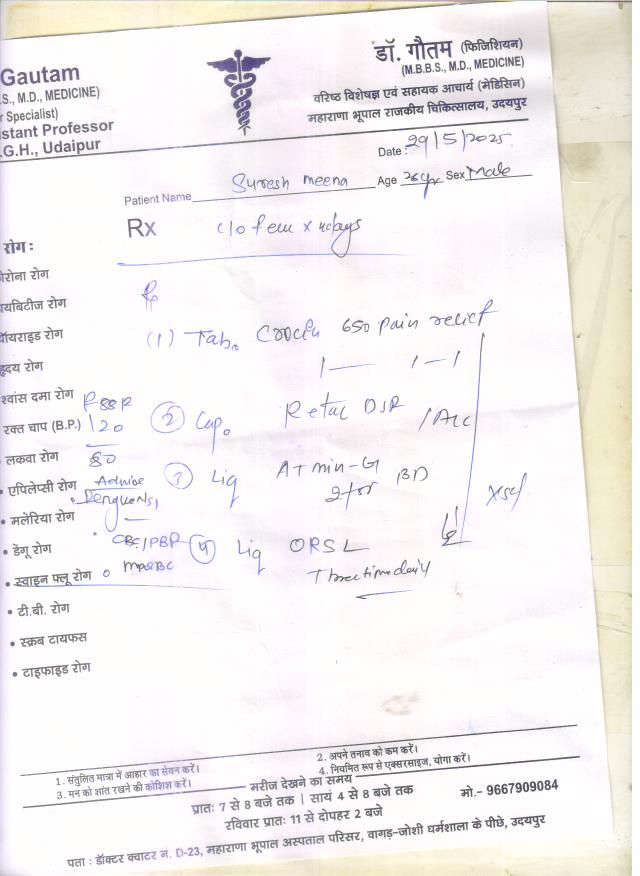 Gautam
S., M.D., MEDICINE)
r Specialist)
stant Professor
.G.H., Udaipur
डॉ. गौतम (फिजिशियन)
(M.B.B.S., M.D., MEDICINE)
वरिष्ठ विशेषज्ञ एवं सहायक आचार्य (मेडिसिन)
महाराणा भूपाल राजकीय चिकित्सालय, उदयपुर
Date : 29/5/2025
Patient Name Suresh meena Age 26 yr Sex Male
Rx c/o
रोग :
ोरोना रोग
ायबिटीज रोग
ॉयराइड रोग
(1) Tab. Crocin 650 pain relief
1— 1—1
हृदय रोग
श्वांस दमा रोग
रक्त चाप (B.P.) 120
80
(2) Cap. Retac DSR 1 Acc
लकवा रोग
• एपिलेप्सी रोग Advise
(3) Liq Atmin-G BD
• मलेरिया रोग
• डेंगू रोग CBC/PBF
(4) Liq ORSL
Three time daily
• स्वाइन फ्लू रोग
• टी.बी. रोग
• स्क्रब टायफस
• टाइफाइड रोग
1. संतुलित मात्रा में आहार का सेवन करें। 2. अपने तनाव को कम करें।
3. मन को शांत रखने की कोशिश करें। 4. नियमित रूप से एक्सरसाइज, योगा करें।
मरीज देखने का समय
प्रातः 7 से 8 बजे तक | सायं 4 से 8 बजे तक मो.- 9667909084
रविवार प्रातः 11 से दोपहर 2 बजे
पता : डॉक्टर क्वाटर नं. D-23, महाराणा भूपाल अस्पताल परिसर, वागड़-जोशी धर्मशाला के पीछे, उदयपुर